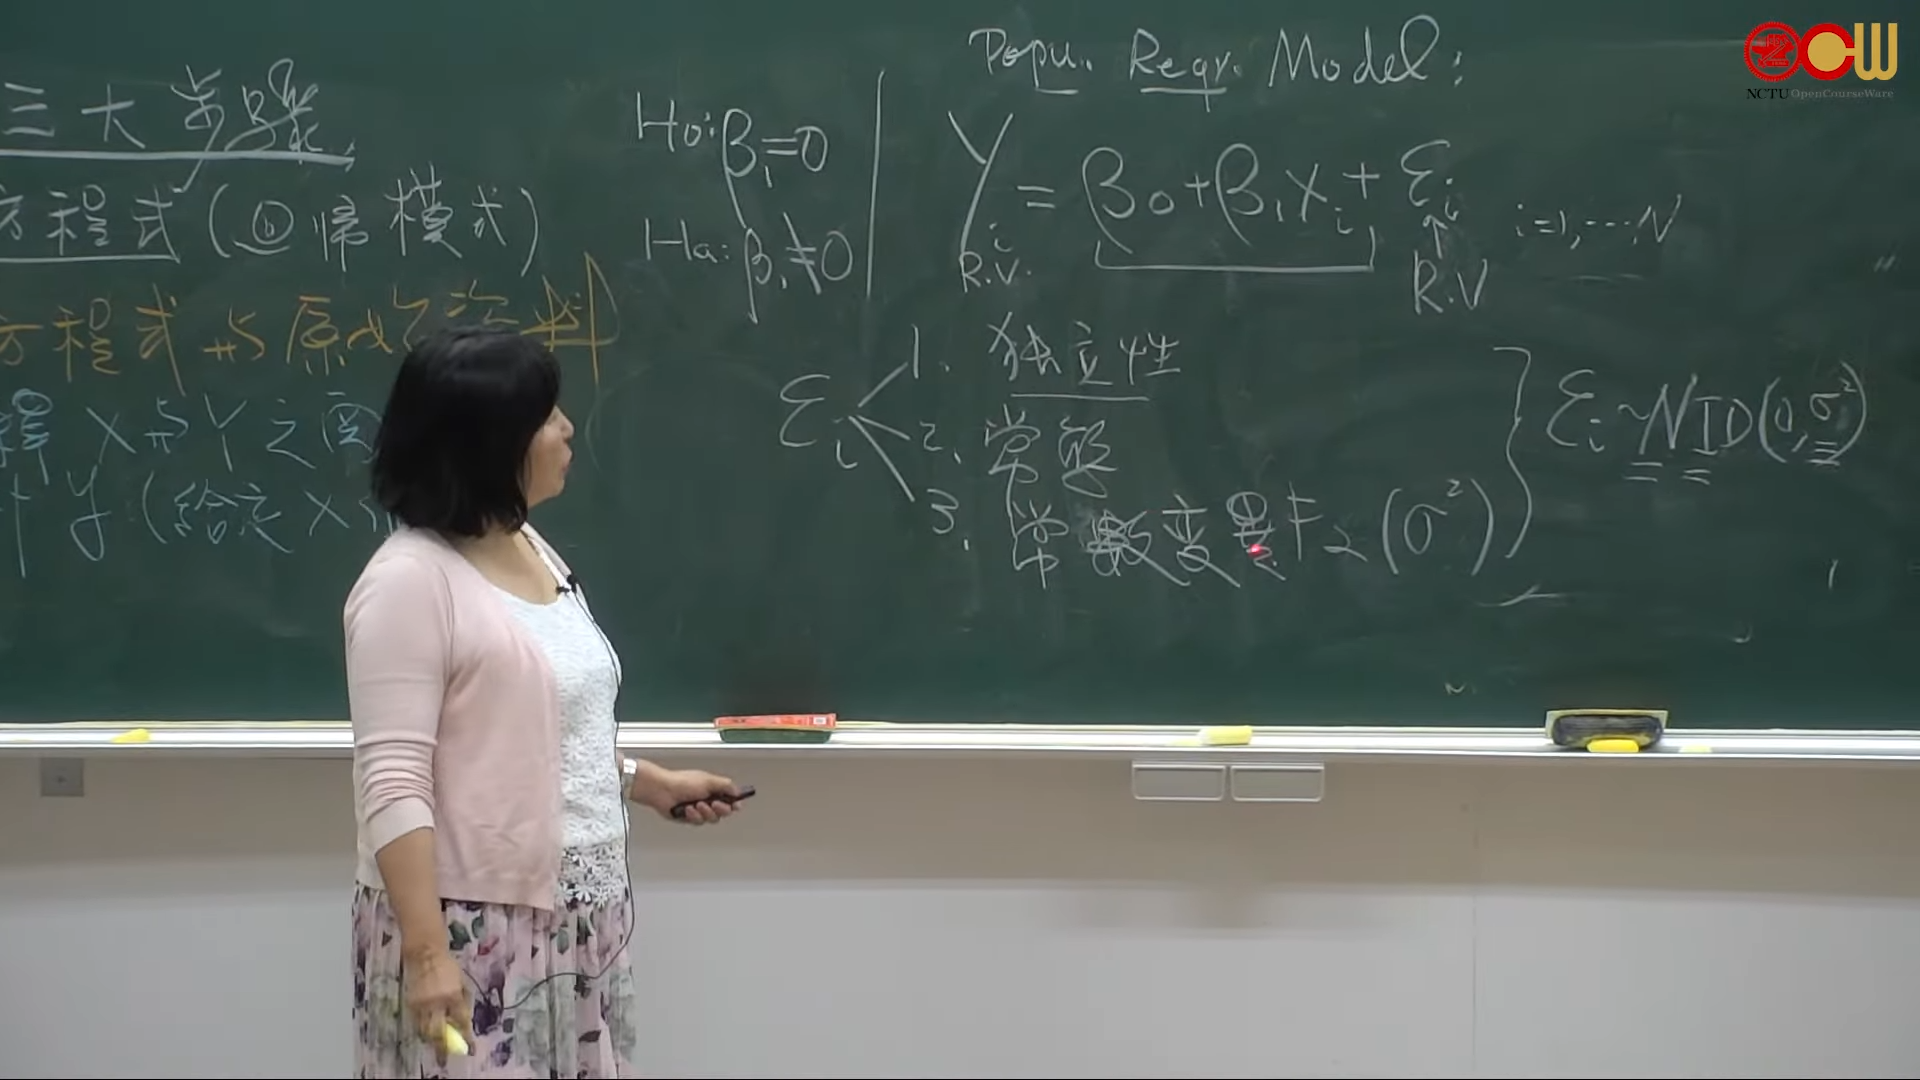 三大步驟
方程式(迴歸模式)
方程式与原始資料
釋 X与Y之
y (給定X
H0: β1=0
Ha: β1≠0
Popu. Regr. Model:
Yi = β0+β1Xi + εi i=1,...,N
R.V. R.V
εi
1. 独立性
2. 常態
3. 常數变異 (σ²)
εi ~NID(0,σ²)
NCTU OpenCourseWare